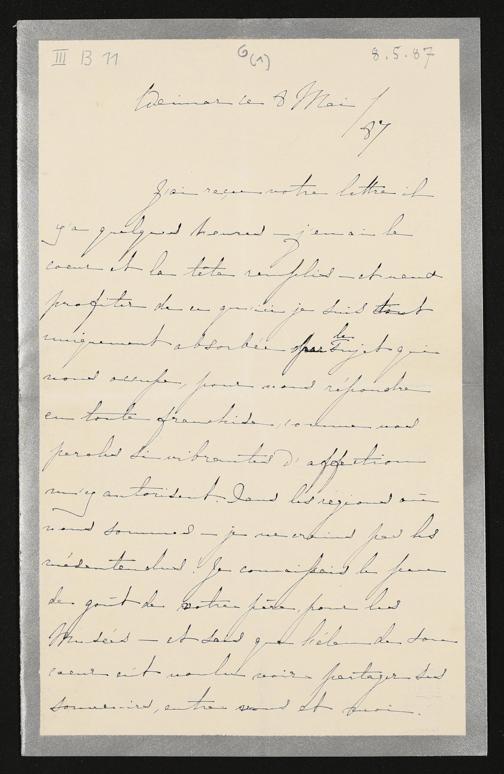 III B 11 6(1) 8.5.87
Weimar ce 8 Mai /
87
J'ai reçu votre lettre il
y a quelques heures – j'en ai le
cœur et la tête remplis – et veux
profiter de ce qu'ici je suis tout
uniquement absorbée par le sujet qui
nous occupe, pour vous répondre
en toute franchise, comme vos
paroles si vibrantes d'affection
m'y autorisent. Dans les régions où
nous sommes – je ne crains pas les
mésentendus. Je connaissais le peu
de goût de votre père, pour les
Musées – et sais que l'élan de son
cœur eût voulu voir partager ses
souvenirs, entre vous et moi.